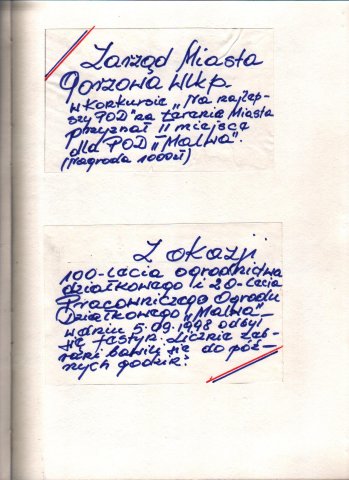 Zarząd Miasta
Gorzowa Wlkp.
w konkursie „Na najlep-
szy POD" na terenie Miasta
przyznał II miejsce
dla POD „Malwa".
(Nagroda 1000zł)
Z okazji
100-lecia ogrodnictwa
działkowego i 20-lecia
Pracowniczego Ogrodu
Działkowego „Malwa"
w dniu 5.09.1998 odbył
się festyn. Licznie zeb-
rani bawili się do póź-
nych godzin.